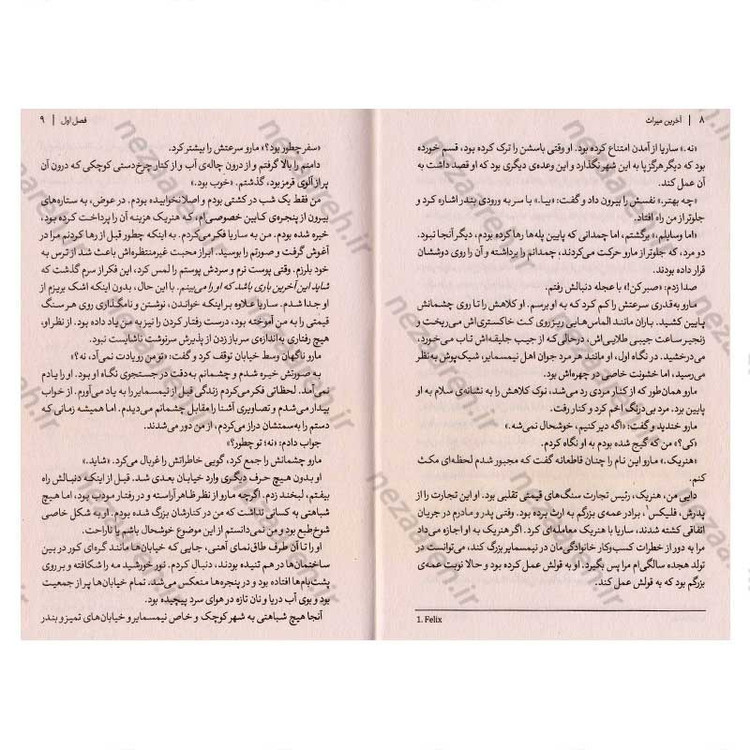 ۸ | آخرین میراث
«نه.» ساریا از آمدن امتناع کرده بود. او وقتی باسشن را ترک کرده بود، قسم خورده
بود که دیگر هرگز پا به این شهر نگذارد و این وعده‌ی دیگری بود که او قصد داشت به
آن عمل کند.
«چه بهتر.» نفسش را بیرون داد و گفت: «بیا.» با سر به ورودی بندر اشاره کرد و
جلوتر از من راه افتاد.
«اما وسایلم.» برگشتم، اما چمدانی که پایین پله‌ها رها کرده بودم، دیگر آنجا نبود.
دو مرد، که جلوتر از مارو حرکت می‌کردند، چمدانم را برداشته و آن را روی دوششان
قرار داده بودند.
صدا زدم: «صبر کن!» با عجله دنبالش رفتم.
مارو به‌قدری سرعتش را کم کرد که به او برسم. او کلاهش را تا روی چشمانش
پایین کشید. باران مانند الماس‌هایی ریز روی کت خاکستری‌اش می‌ریخت و
زنجیر ساعت جیبی طلایی‌اش، درحالی‌که از جیب جلیقه‌اش تاب می‌خورد،
می‌درخشید. در نگاه اول، او مانند هر مرد جوان اهل نیمسمایر، شیک‌پوش به نظر
می‌رسید، اما خشونت خاصی در چهره‌اش بود.
مارو همان‌طور که از کنار مردی رد می‌شد، نوک کلاهش را به نشانه‌ی سلام به او
پایین برد. مرد بی‌درنگ اخم کرد و کنار رفت.
مارو خندید و گفت: «اگه دیر کنیم، خوشحال نمی‌شه.»
«کی؟» من که گیج شده بودم به او نگاه کردم.
«هنریک.» مارو این نام را چنان قاطعانه گفت که مجبور شدم لحظه‌ای مکث
کنم.
دایی من، هنریک، رئیس تجارت سنگ‌های قیمتی تقلبی بود. او این تجارت را از
پدرش، فلیکس۱، برادر عمه‌ی بزرگم به ارث برده بود. وقتی پدر و مادرم در جریان
اتفاقی کشته شدند، ساریا با هنریک معامله‌ای کرد. اگر هنریک به او اجازه می‌داد
مرا به دور از خطرات کسب‌وکار خانوادگی‌مان در نیمسمایر بزرگ کند، می‌توانست در
تولد هجده سالگی‌ام مرا پس بگیرد. او به قولش عمل کرده بود و حالا نوبت عمه‌ی
بزرگم بود که به قولش عمل کند.
1. Felix
فصل اول | ۹
«سفر چطور بود؟» مارو سرعتش را بیشتر کرد.
دامنم را بالا گرفتم و از درون چاله‌ی آب و از کنار چرخ‌دستی کوچکی که درون آن
پر از آلوی قرمز بود، گذشتم. «خوب بود.»
من فقط یک شب در کشتی بودم و اصلا نخوابیده بودم. در عوض، به ستاره‌های
بیرون از پنجره‌ی کابین خصوصی‌ام، که هنریک هزینه آن را پرداخت کرده بود،
خیره شده بودم. من به ساریا فکر می‌کردم. به اینکه چطور قبل از رها کردنم مرا در
آغوش گرفت و صورتم را بوسید. ابراز محبت غیرمنتظره‌اش باعث شد از ترس به
خود بلرزم. وقتی پوست نرم و سردش پوستم را لمس کرد، این فکر از سرم گذشت که
شاید این آخرین باری باشد که او را می‌بینم. با این حال، بدون اینکه اشک بریزم از
او جدا شدم. ساریا علاوه بر اینکه خواندن، نوشتن و نامگذاری روی هر سنگ
قیمتی را به من آموخته بود، درست رفتار کردن را نیز به من یاد داده بود. از نظر او،
هیچ رفتاری به اندازه‌ی سر باز زدن از پذیرش سرنوشت ناشایست نبود.
مارو ناگهان وسط خیابان توقف کرد و گفت: «تو من رو یادت نمی‌آد، نه؟»
به صورتش خیره شدم و چشمانم به‌دقت در جستجوی نگاه او بود. او را یادم
نمی‌آمد. لحظاتی فکر می‌کردم زندگی قبل از نیمسمایر را به یاد می‌آورم. از خواب
بیدار می‌شدم و تصاویری آشنا را مقابل چشمانم می‌دیدم. اما همیشه زمانی که
دستم را به سمتشان دراز می‌کردم، از من دور می‌شدند.
جواب دادم: «نه؛ تو چطور؟»
مارو چشمانش را جمع کرد، گویی خاطراتش را غربال می‌کرد. «شاید.»
او بدون هیچ حرف دیگری وارد خیابان بعدی شد. قبل از اینکه دنبالش راه
بیفتم، لبخند زدم. اگرچه مارو از نظر ظاهر آراسته و در رفتار مودب بود، اما هیچ
شباهتی به کسانی نداشت که من در کنارشان بزرگ شده بودم. او به شکل خاصی
شوخ‌طبع بود و من نمی‌دانستم از این موضوع خوشحال باشم یا ناراحت.
او را تا آن طرف طاق‌نمای آهنی، جایی که خیابان‌ها مانند گره‌ای کور در بین
ساختمان‌ها در هم تنیده بودند، دنبال کردم. نور خورشید مه را شکافته و بر روی
پشت‌بام‌ها افتاده بود و در پنجره‌ها منعکس می‌شد. تمام خیابان‌ها پر از جمعیت
بود و بوی آب دریا و نان تازه در هوای سرد پیچیده بود.
آنجا هیچ شباهتی به شهر کوچک و خاص نیمسمایر و خیابان‌های تمیز و بندر
nezaareh.ir